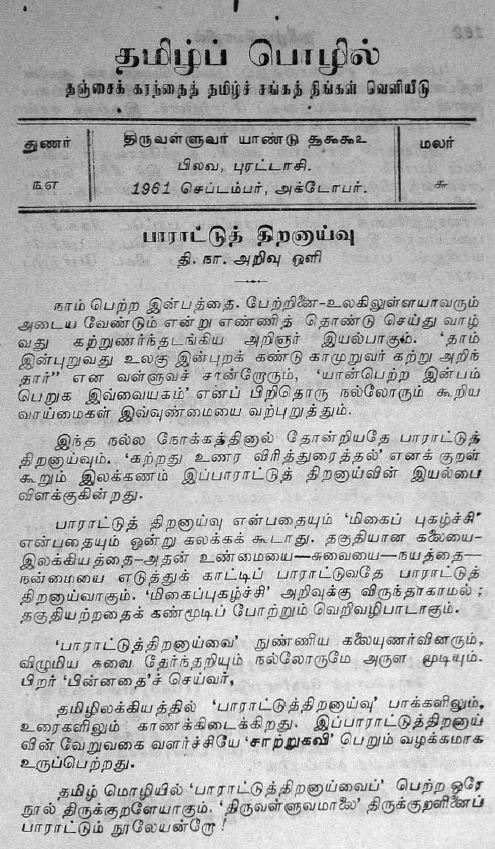 தமிழ்ப் பொழில்
தஞ்சைக் கரந்தைத் தமிழ்ச் சங்கத் திங்கள் வெளியீடு
துணர்
௩௭
திருவள்ளுவர் யாண்டு ௬௯௯௨
பிலவ, புரட்டாசி.
1961 செப்டம்பர், அக்டோபர்.
மலர்
௬
பாராட்டுத் திறனாய்வு
தி. நா. அறிவு ஒளி
நாம் பெற்ற இன்பத்தை. பேற்றினை-உலகிலுள்ளயாவரும்
அடைய வேண்டும் என்று எண்ணித் தொண்டு செய்து வாழ்
வது கற்றுணர்ந்தடங்கிய அறிஞர் இயல்பாகும். 'தாம்
இன்புறுவது உலகு இன்புறக் கண்டு காமுறுவர் கற்று அறிந்
தார்" என வள்ளுவச் சான்றோரும், 'யான்பெற்ற இன்பம்
பெறுக இவ்வையகம்' எனப் பிறிதொரு நல்லோரும் கூறிய
வாய்மைகள் இவ்வுண்மையை வற்புறுத்தும்.
இந்த நல்ல நோக்கத்தினால் தோன்றியதே பாராட்டுத்
திறனாய்வும். 'கற்றது உணர விரித்துரைத்தல்' எனக் குறள்
கூறும் இலக்கணம் இப்பாராட்டுத் திறனாய்வின் இயல்பை
விளக்குகின்றது.
பாராட்டுத் திறனாய்வு என்பதையும் 'மிகைப் புகழ்ச்சி'
என்பதையும் ஒன்று கலக்கக் கூடாது. தகுதியான கலையை-
இலக்கியத்தை-அதன் உண்மையை—சுவையை—நயத்தை—
நன்மையை எடுத்துக் காட்டிப் பாராட்டுவதே பாராட்டுத்
திறனாய்வாகும். 'மிகைப்புகழ்ச்சி' அறிவுக்கு விருந்தாகாமல் ;
தகுதியற்றதைக் கண்மூடிப் போற்றும் வெறிவழிபாடாகும்.
'பாராட்டுத்திறனாய்வை' நுண்ணிய கலையுணர்வினரும்,
விழுமிய சுவை தேர்ந்தறியும் நல்லோருமே அருள முடியும்.
பிறர் 'பின்னதை'ச் செய்வர்,
தமிழிலக்கியத்தில் 'பாராட்டுத்திறனாய்வு' பாக்களிலும்,
உரைகளிலும் காணக்கிடைக்கிறது. இப்பாராட்டுத்திறனாய்
வின் வேறுவகை வளர்ச்சியே 'சாற்றுகவி' பெறும் வழக்கமாக
உருப்பெற்றது.
தமிழ் மொழியில் 'பாராட்டுத்திறனாய்வைப்' பெற்ற ஒரே
நூல் திருக்குறளேயாகும். 'திருவள்ளுவமாலை' திருக்குறளினைப்
பாராட்டும் நூலேயன்றோ !